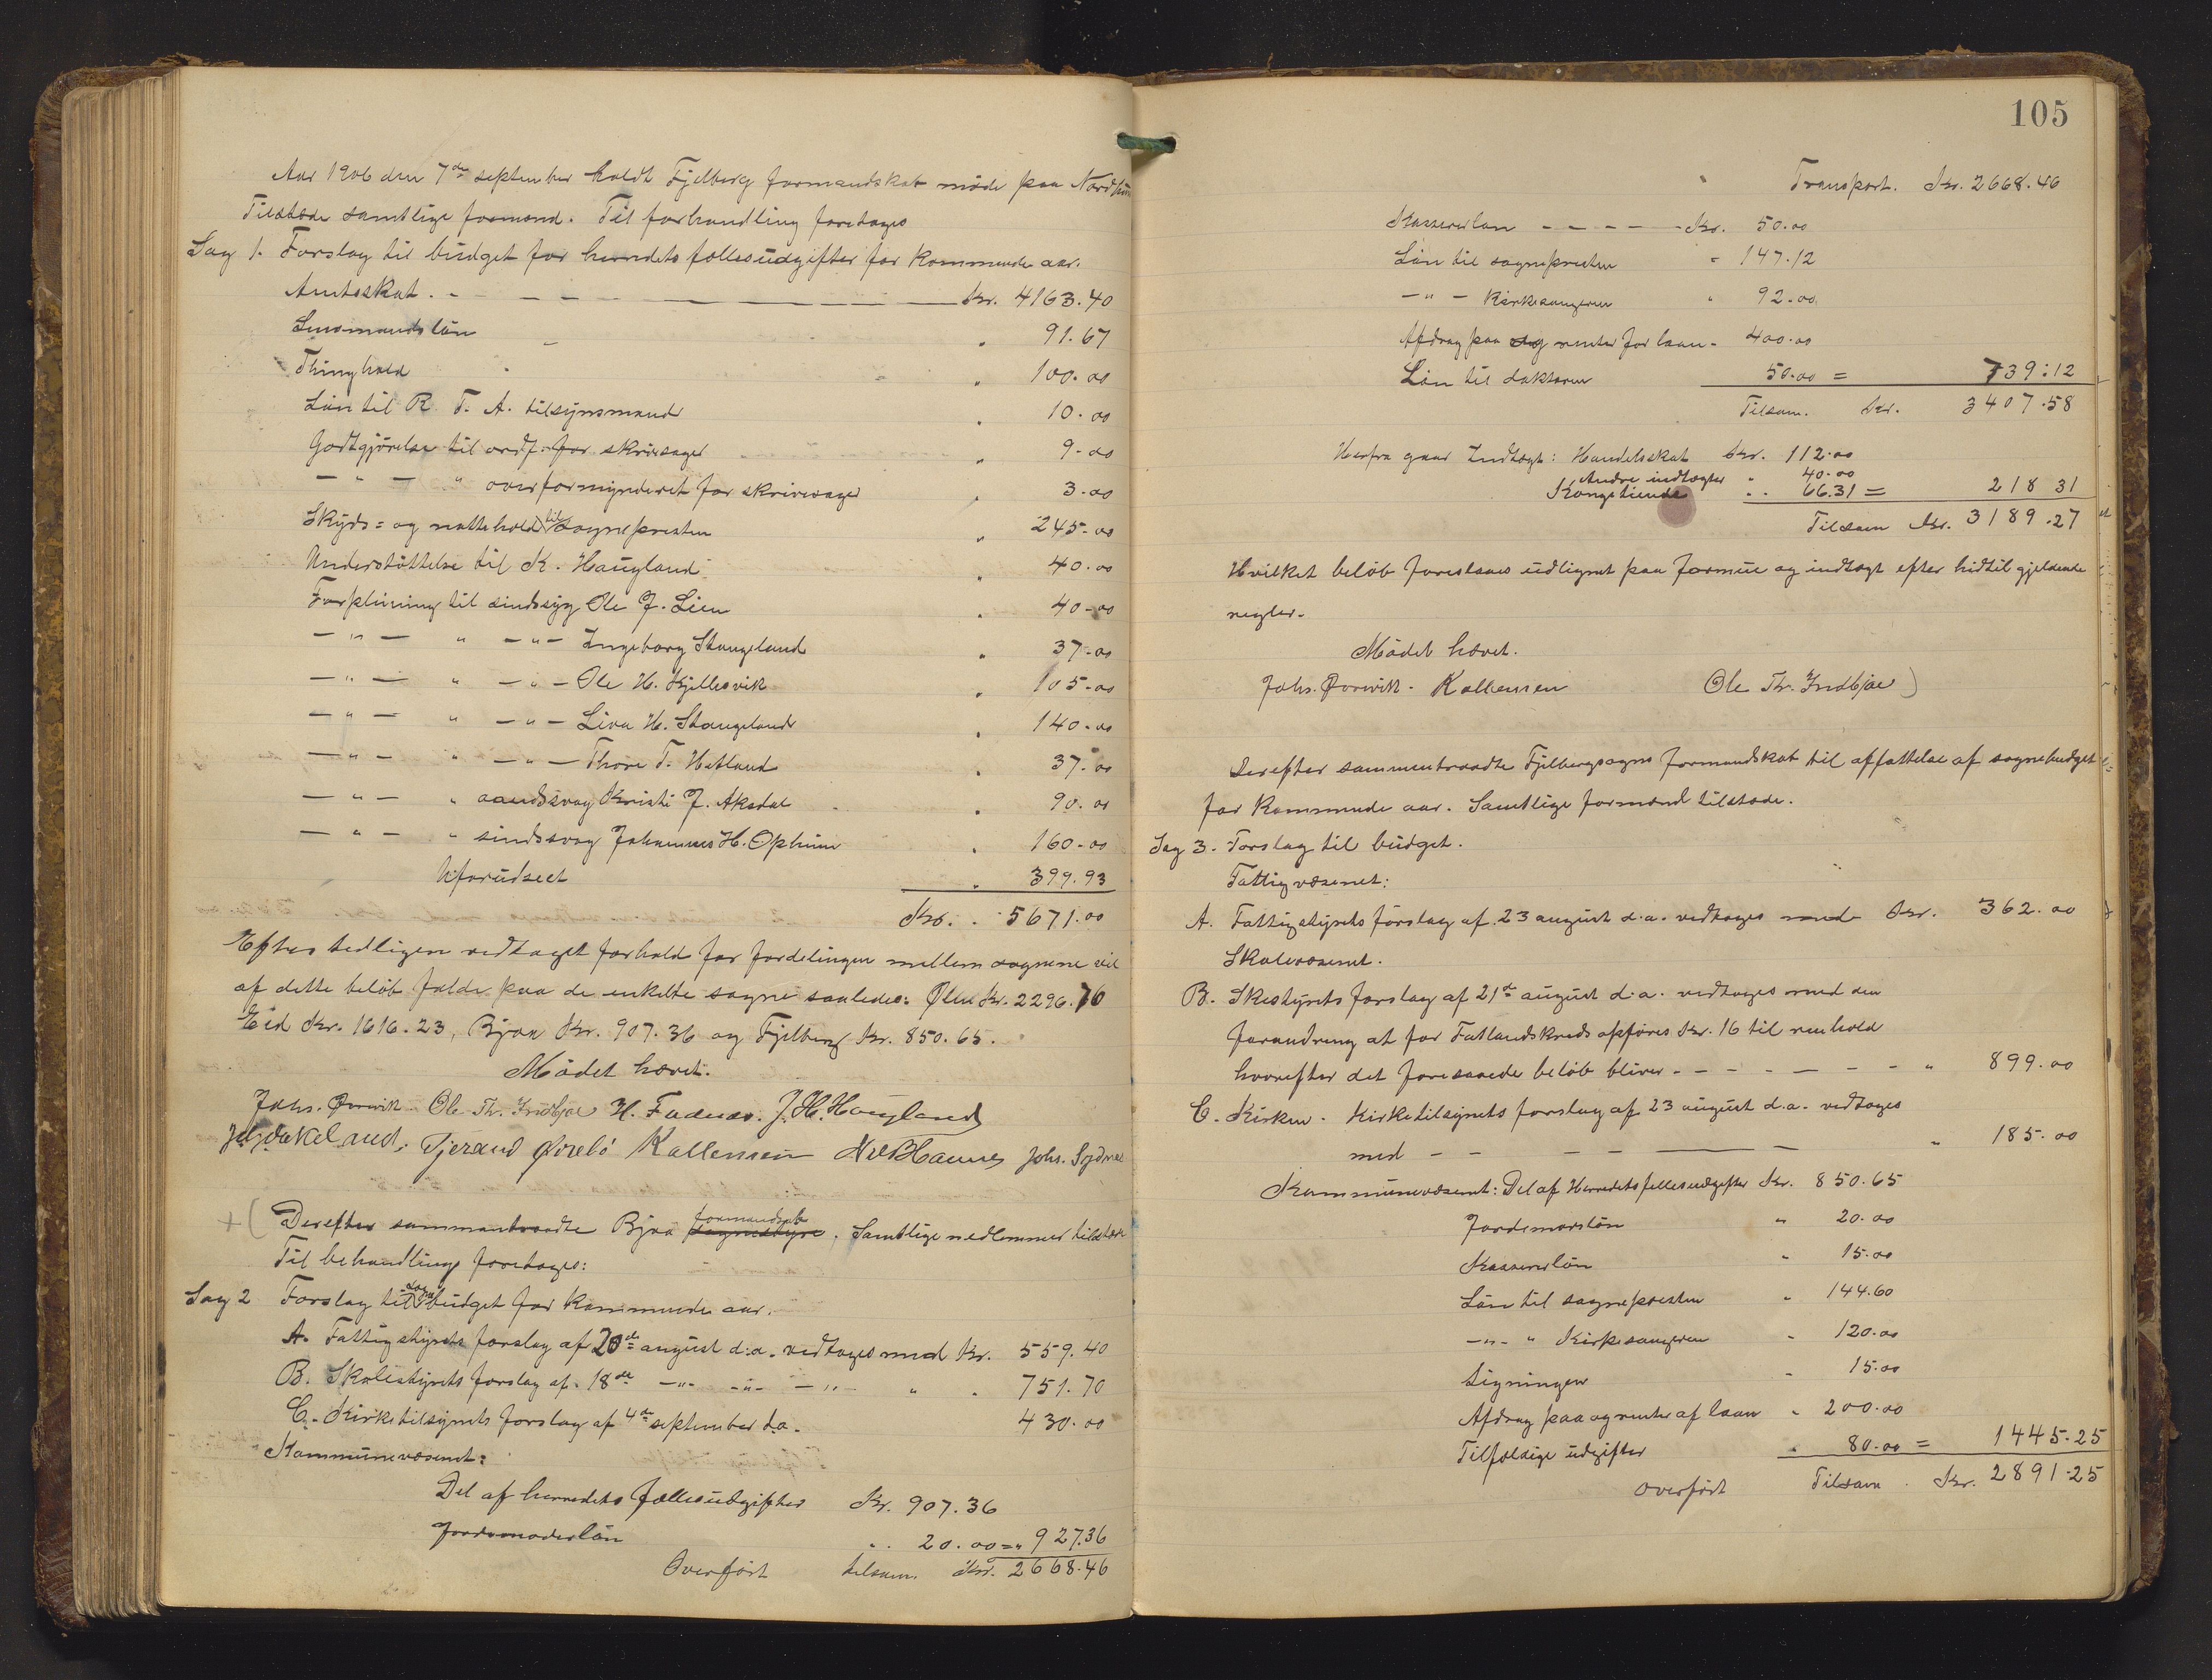 Aar 1906 den 7de september holdt Fjelberg formandskab møde paa
Tilstede samtlige formænd. Til forhandling foretages
Sag 1. Forslag til budget for herredets fællesudgifter for kommende aar.
Amtsskat. - - - - Kr. 4163.40
Lensmandsløn " 91.67
Thinghold " 100.00
Løn til R. T. A. tilsynsmand " 10.00
Godtgjørelse til ordf. for skrivesager " 9.00
— " — " overformynderiet for skrivesager " 3.00
Skyds= og nattehold til sognepresten " 245.00
Understøttelse til K. Haugland " 40.00
Forpleining til sindssyg Ole J. Lien " 40.00
— " — " — " — Ingeborg Stangeland " 37.00
— " — " — " — Ole H. Kjellesvik " 105.00
— " — " — " — Liva H. Stangeland " 140.00
— " — " — " — Thore T. Hetland " 37.00
— " — " aandssvag Kristi J. Aksdal " 90.00
— " — " sindssvag Johannes H. Opheim " 160.00
Uforudseet " 399.93
Kr. 5671.00
Efter tedligen vedtaget forhold for fordelingen mellem sognene vil
af dette beløb falde paa de enkelte sogne saaledes: Ølen Kr. 2296.76
Eid Kr. 1616.23, Bjoa Kr. 907.36 og Fjelberg Kr. 850.65.
Mødet hævet.
Johs. Ørnvik Ole Th. Indbjoe H. Fadnæs. J. H. Hougland
Tjerand Ørebö Kallensen Johs. Sydnes
+) Derefter sammentraadte Bjoa sognestyre formandskab. Samtlige medlemmer tilstede
Til behandling foretages:
Sag 2 Forslag til sognebudget for kommende aar.
A. Fattigstyrets forslag af 20de august d:a. vedtages med Kr. 559.40
B. Skolestyrets forslag af 18de —"— —"— —"— " " 751.70
C. Kirketilsynets forslag af 4de september d.a. 430.00
Kommunevæsenet:
Del af herredets fællesudgifter Kr. 907.36
Jordemoderløn " 20.00 = " 927.36
Overført tilsam. Kr. 2668.46
105
Transport. Kr. 2668.46
Kassererløn - - - - - Kr. 50.00
Løn til sognepresten " 147.12
— " — Kirkesangeren " 92.00
Afdrag paa og renter for laan - 400.00
Løn til doktoren 50.00 = 739:12
Tilsam. Kr. 3407.58
Herfra gaar Indtægt: Handelsskat Kr. 112.00
Andre indtægter " 40.00
Kongetiende " 66.31 = 218 31
Tilsam Kr. 3189.27
Hvilket beløb foreslaaes udlignet paa formue og indtægt efter hidtil gjeldende
regler.
Mødet hævet.
Johs. Ørnvik. Kallensen Ole Th. Indbjoe)
Derefter sammentraadte Fjelbergsogns formandskab til affattelse af sognebudget
for kommende aar. Samtlige formænd tilstede.
Sag 3. Forslag til budget.
Fattigvæsenet:
A. Fattigstyrets forslag af 23 august d.a. vedtages med Kr. 362.00
Skolevæsenet.
B. Skostyrets forslag af 21de august d:a. vedtages med den
forandring at for Fatlandskreds opføres Kr. 16 til renhold
hvorefter det foresaaede beløb bliver - - - - - - - " 899.00
C. Kirken. Kirketilsynets forslag af 23 august d.a. vedtages
med - - - - — — " 185.00
Kommunevæsenet: Del af Herredets fællesudgifter Kr. 850.65
Jordemorsløn " 20.00
Kassererløn " 15.00
Løn til sognepresten " 144.60
— " — " Kirkesangeren " 120.00
Ligningen " 15.00
Afdrag paa og renter af laan " 200.00
Tilfældige udgifter " 80.00 = 1445.25
Overført Tilsam. Kr. 2891.25